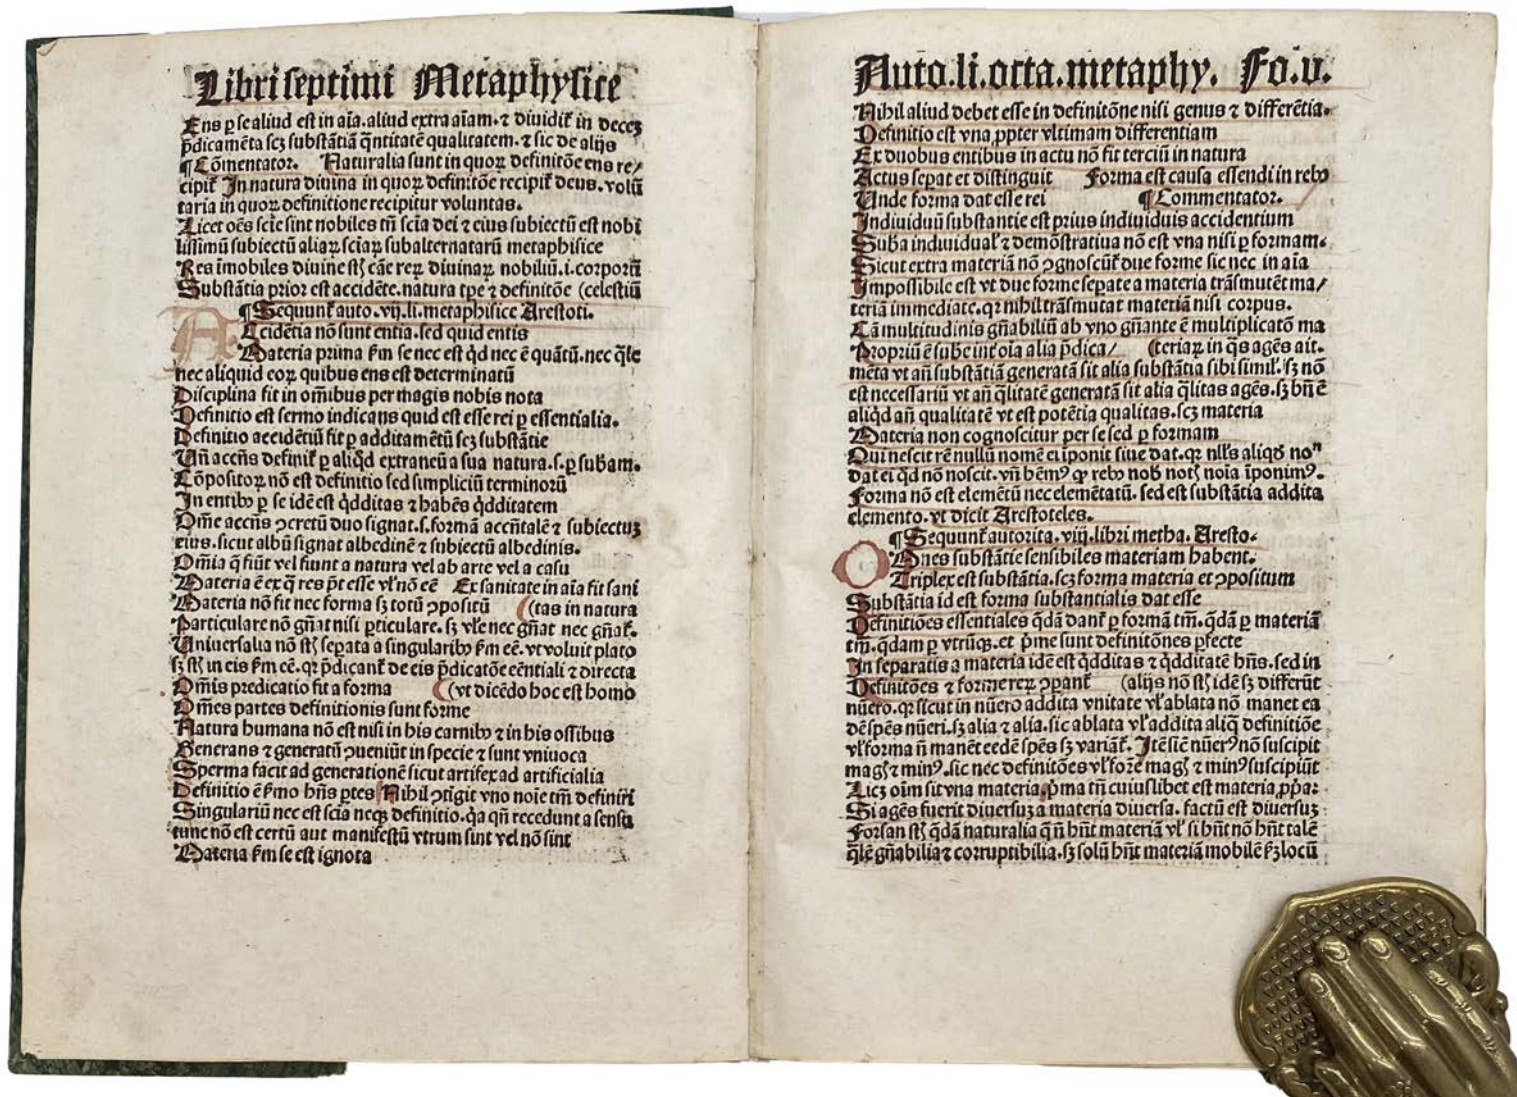 Libri septimi Metaphysice
Ens p̱ se aliud est in aīa. aliud extra aīam. ⁊ diuidit᷑ in decez
p̄dicamēta scꝫ substātiā q̄ntitatē qualitatem. ⁊ sic de alijs
¶ Cōmentator. Naturalia sunt in quoꝝ definitōe ens re/
cipit᷑ In natura diuina in quoꝝ definitōe recipit᷑ deus. volū
taria in quoꝝ definitione recipitur voluntas.
Licet oēs scīe sint nobiles tn̄ scīa dei ⁊ eius subiectū est nobi
lissimū subiectū aliaꝝ sciaꝝ subalternatarū metaphisice
Res īmobiles diuine st̄ cāe reꝝ diuinaꝝ nobiliū .i. corporū
Substātia prior est accidēte. natura tp̄e ⁊ definitōe (celestiū
¶ Sequunt᷑ auto. vij. li. metaphisice Arestoti.
Accidētia nō sunt entia. sed quid entis
Materia prima ẜm se nec est q̇d nec ē quātū. nec q̄le
nec aliquid eoꝝ quibus ens est determinatū
Disciplina fit in om̄ibus per magis nobis nota
Definitio est sermo indicans quid est esse rei p̱ essentialia.
Definitio accidētiū fit p̱ additamētū scꝫ substātie
Un̄ accn̄s definit᷑ p̱ aliq̇d extraneū a sua natura .s. p̱ sub̄am.
Cōpositoꝝ nō est definitio sed simpliciū terminorū
In entibꝰ p̱ se idē est q̇dditas ⁊ habēs q̇dditatem
Om̄e accn̄s ꝯcretū duo signat .s. formā accn̄talē ⁊ subiectuꝫ
eius. sicut albū signat albedinē ⁊ subiectū albedinis.
Om̄ia q̄ fiūt vel fiunt a natura vel ab arte vel a casu
Materia ē ex q̄ res p̄t esse vl̄ nō eē Ex sanitate in aīa fit sani
Materia nō fit nec forma sꝫ totū ꝯpositū (tas in natura
Particulare nō gn̄at nisi p̱ticulare. sꝫ vl̄e nec gn̄at nec gn̄at᷑.
Uniuersalia nō st̄ sep̱ata a singularibꝰ ẜm eē. vt voluit plato
sꝫ st̄ in eis ẜm eē. qꝛ p̄dicant᷑ de eis p̄dicatōe eēntiali ⁊ directa
Om̄is predicatio fit a forma (vt dicēdo hoc est homo
Om̄es partes definitionis sunt forme
Natura humana nō est nisi in his carnibꝰ ⁊ in his ossibus
Generans ⁊ generatū ꝯueniūt in specie ⁊ sunt vniuoca
Sperma facit ad generationē sicut artifex ad artificialia
Definitio ē ẜmo hn̄s p̱tes Nihil ꝯtīgit vno noīe tm̄ definiri
Singulariū nec est scīa neqꝫ definitio. q̇a qn̄ recedunt a sensu
tunc nō est certū aut manifestū vtrum sint vel nō sint
Materia ẜm se est ignota
Auto. li. octa. metaphy. Fo. v.
Nihil aliud debet esse in definitōne nisi genus ⁊ differētia.
Definitio est vna ꝓpter vltimam differentiam
Ex duobus entibus in actu nō fit terciū in natura
Actus sep̱at et distinguit Forma est causa essendi in rebꝰ
Unde forma dat esse rei ¶ Commentator.
Indiuiduū substantie est prius indiuiduis accidentium
Sub̄a indiuidual᷑ ⁊ demōstratiua nō est vna nisi p̱ formam.
Sicut extra materiā nō ꝯgnoscūt᷑ due forme sic nec in aīa
Impossibile est vt due forme sep̱ate a materia trāsmutēt ma/
teriā immediate. qꝛ nihil trāsmutat materiā nisi corpus.
Cā multitudinis gn̄abiliū ab vno gn̄ante ē multiplicatō ma
Propriū ē sub̄e int᷑ oīa alia p̄dica/ (teriaꝝ in q̄s agēs ait.
mēta vt an̄ substātiā generatā sit alia substātia sibi simil᷑. sꝫ nō
est necessariū vt an̄ q̄litatē generatā sit alia q̄litas agēs. sꝫ bn̄ ē
aliq̇d an̄ qualitatē vt est potētia qualitas. scꝫ materia
Materia non cognoscitur per se sed p̱ formam
Qui nescit rē nullū nomē ei īponit siue dat. qꝛ nll̄s aliqd̄ noⁿ
dat ei q̇d nō noscit. vn̄ hēmꝰ ꝙ rebꝰ nob̄ not̄ noīa īponimꝰ.
Forma nō est elemētū nec elemētatū. sed est substātia addita
elemento. vt dicit Arestoteles.
¶ Sequunt᷑ autorita. viij. libri metha. Aresto.
Omnes substātie sensibiles materiam habent.
Triplex est substātia. scꝫ forma materia et ꝯpositum
Substātia id est forma substantialis dat esse
Definitiōes essentiales q̇dā dant᷑ p̱ formā tm̄. q̇dā p̱ materiā
tm̄. q̇dam p̱ vtrūqꝫ. et p̄me sunt definitōnes p̱fecte
In separatis a materia idē est q̇dditas ⁊ q̇dditatē hn̄s. sed in
Definitōes ⁊ forme reꝝ ꝯpant᷑ (alijs nō st̄ idē sꝫ differūt
nūero. qꝛ sicut in nūero addita vnitate vl̄ ablata nō manet ea
dē spēs nūeri. sꝫ alia ⁊ alia. sic ablata vl̄ addita aliq̄ definitiōe
vl̄ forma n̄ manēt eedē spēs sꝫ variāt᷑. Itē siē nūerꝰ nō suscipit
maḡ ⁊ minꝰ. sic nec definitōes vl̄ forme maḡ ⁊ minꝰ suscipiūt
Licꝫ oīm sit vna materia p̄ma tn̄ cuiuslibet est materia ꝓp̄a:
Si agēs fuerit diuersuꝫ a materia diuersa. factū est diuersuꝫ
Forsan st̄ q̇dā naturalia q̄ n̄ hn̄t materiā vl̄ si hn̄t nō hn̄t talē
q̄lē gn̄abilia ⁊ corruptibilia. sꝫ solū hn̄t materiā mobilē ẜꝫ locū